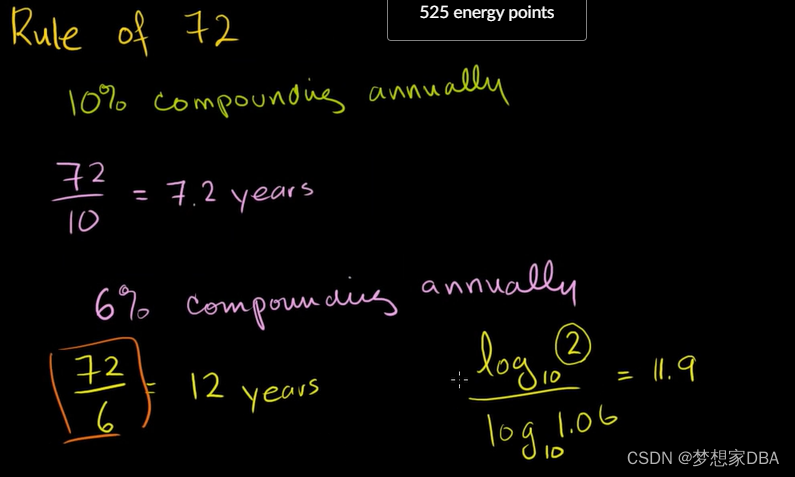 525 energy points
Rule of 72
10% compounding annually
72/10 = 7.2 years
6% compounding annually
72/6 = 12 years
log₁₀ 2 / log₁₀ 1.06 = 11.9
CSDN @梦想家DBA